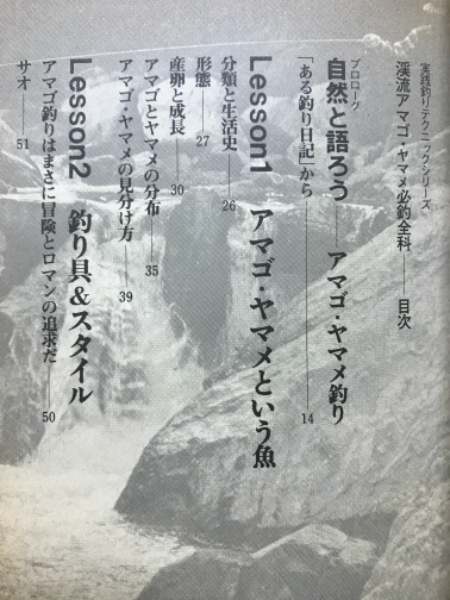 実践釣りテクニックシリーズ
渓流アマゴ・ヤマメ必釣全科――目次
プロローグ
自然と語ろう――アマゴ・ヤマメ釣り
「ある釣り日記」から――14
Lesson1 アマゴ・ヤマメという魚
分類と生活史――26
形態――27
産卵と成長――30
アマゴとヤマメの分布――35
アマゴ・ヤマメの見分け方――39
Lesson2 釣り具&スタイル
アマゴ釣りはまさに冒険とロマンの追求だ――50
サオ――51